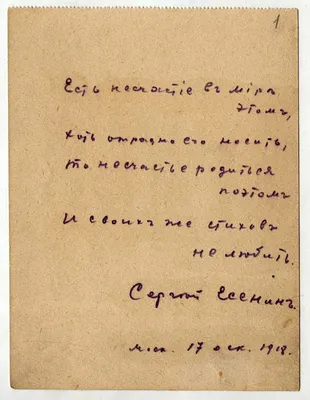 1
Есть несчастiе въ мiрѣ
этомъ,
хоть отрадно его носить,
то несчастье родиться
поэтомъ
И своихъ же стиховъ
не любить.
Сергѣй Есенинъ.
Моск. 17 окт. 1918.